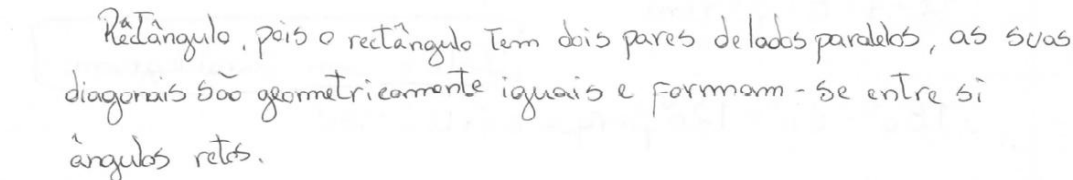 Rectângulo, pois o rectângulo Tem dois pares de lados paralelos, as suas
diagonais são geometricamente iguais e Formam-se entre si
ângulos retos.